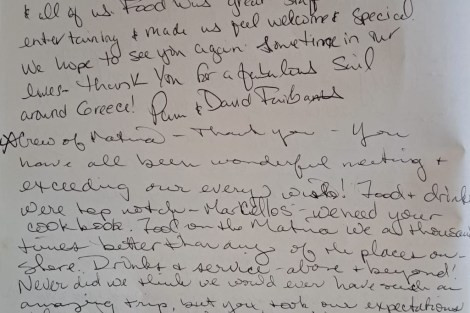 & all of us. Food was great staff
entertaining & made us feel welcome & special.
We hope to see you again sometime in our
lives - thank you for a fabulous sail
around Greece! Pam & David Fairbanks
Crew of Matina - Thank you - You
have all been wonderful meeting &
exceeding our every wish! Food & drink
were top notch - Marcellos - we need your
cook book. Food on the Matina was a thousand
times better than any of the places on-
shore. Drinks & service - above & beyond!
Never did we think we would ever have such an
amazing trip, but you took our expectations